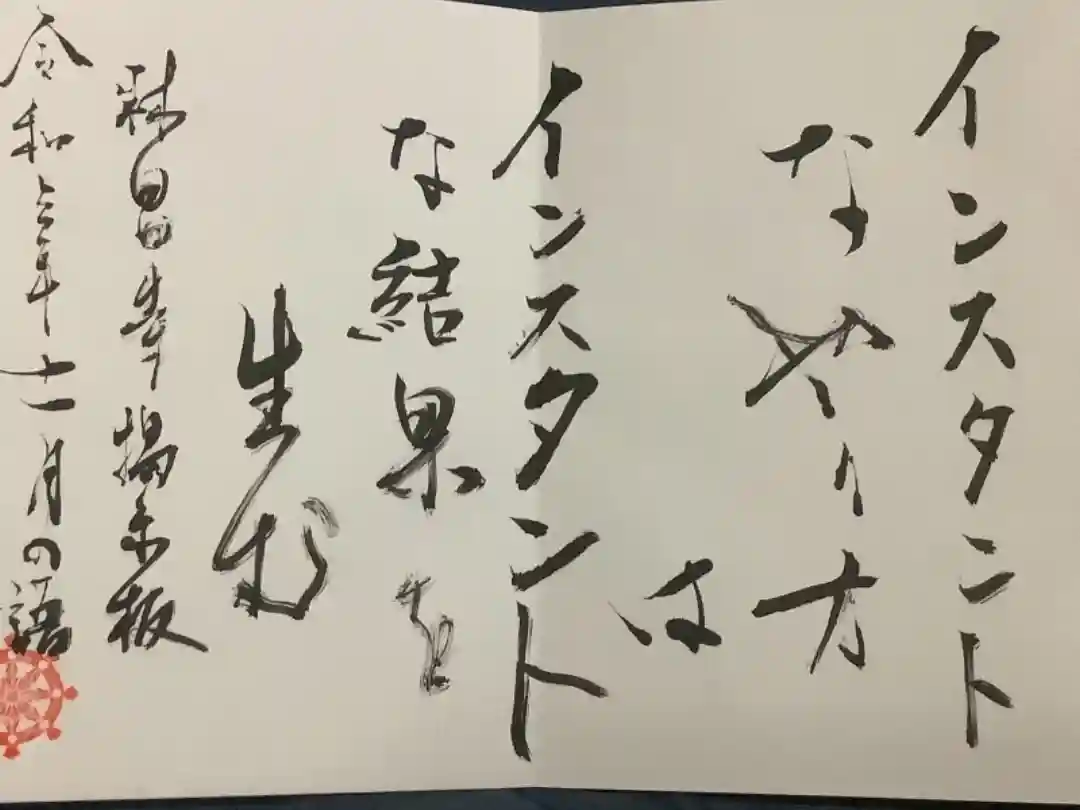 インスタント
なやり方
は
インスタント
な結果を
生む
掲示板
令和六年十一月の語